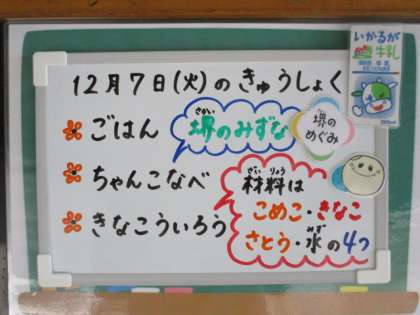 12月7日(火)のきゅうしょく
いかるが
牛乳
ごはん
さかい
堺のみずな
堺の
めぐみ
ちゃんこなべ
ざいりょう
材料は
こめこ・きなこ
きなこういろう
みず
さとう・水の4つ